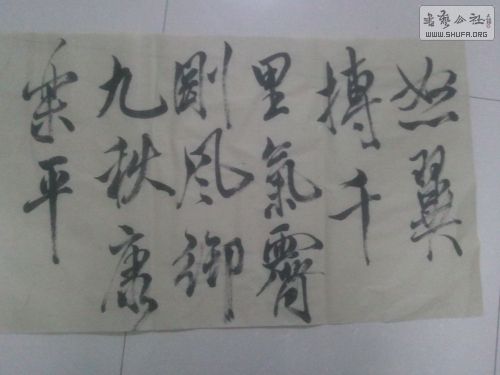 書藝公社
WWW.SHUFA.ORG
怒翼
搏千
里氣霽
剛風御
九秩康
樂平